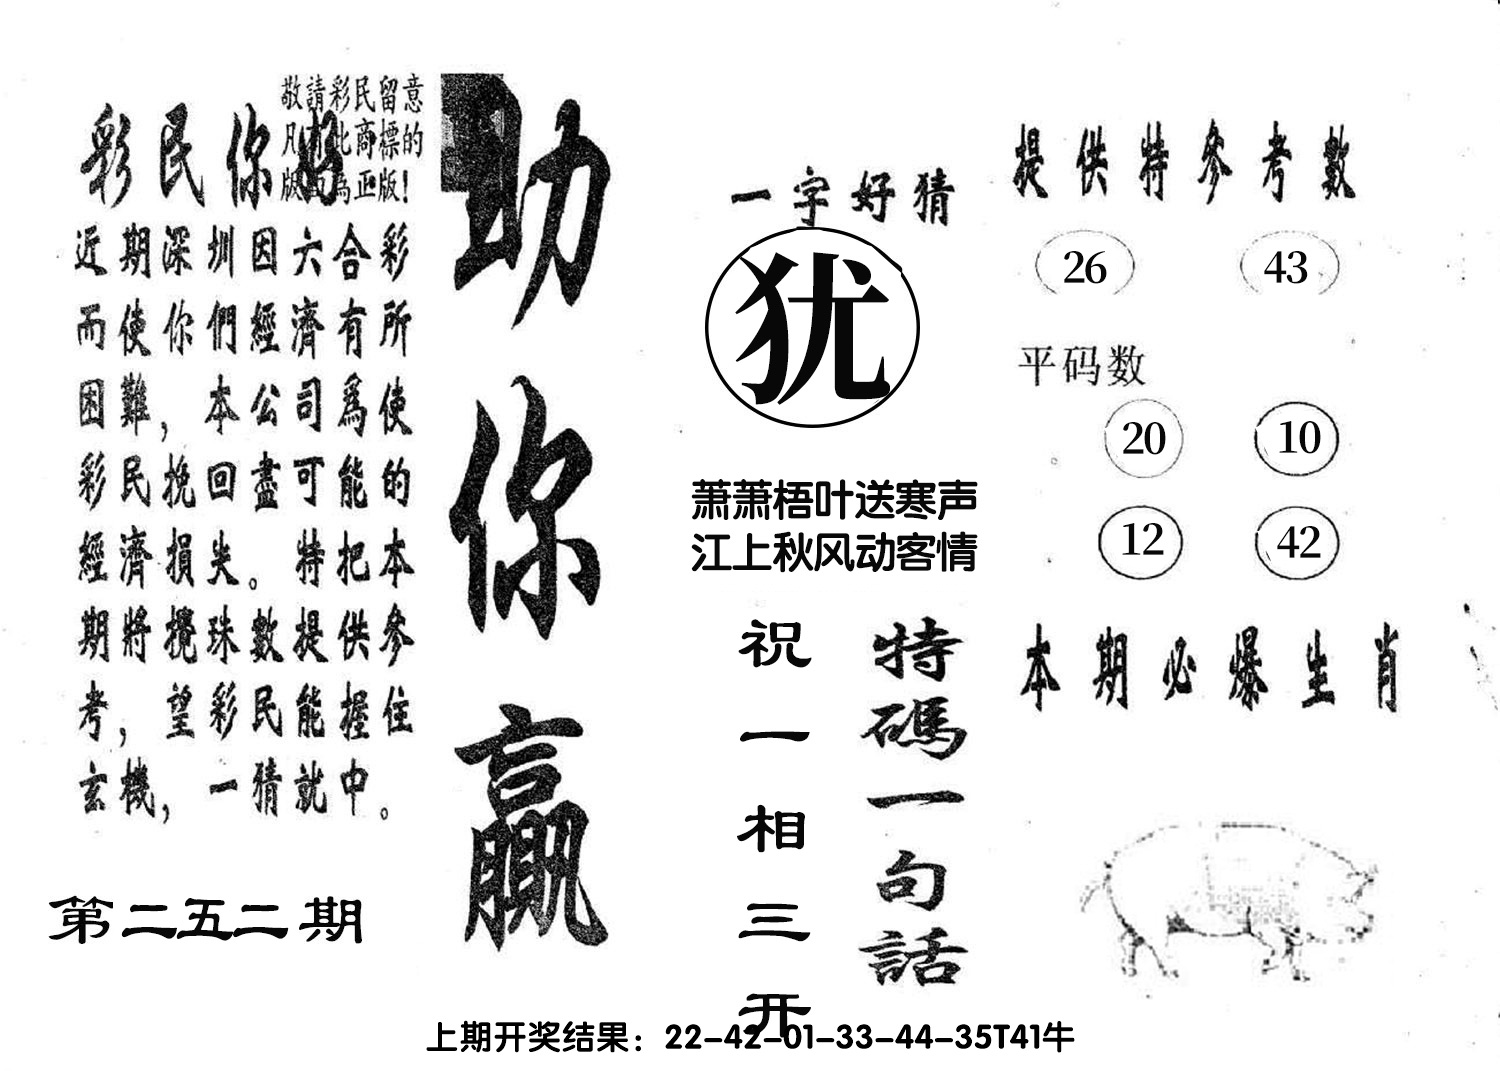 敬請彩民留意
凡有此商標的
版面為正版！
彩民你好
近期深圳因六合彩
而使你們經濟有所
困難，本公司爲使
彩民挽回盡可能的
經濟損失。特把本
期將攪珠數提供參
考，望彩民能握住
玄機，一猜就中。
第二五二期
助你赢
一字好猜
犹
萧萧梧叶送寒声
江上秋风动客情
特碼一句話
祝一相三开
提供特參考數
26 43
平码数
20 10
12 42
本期必爆生肖
上期开奖结果：22-42-01-33-44-35T41牛